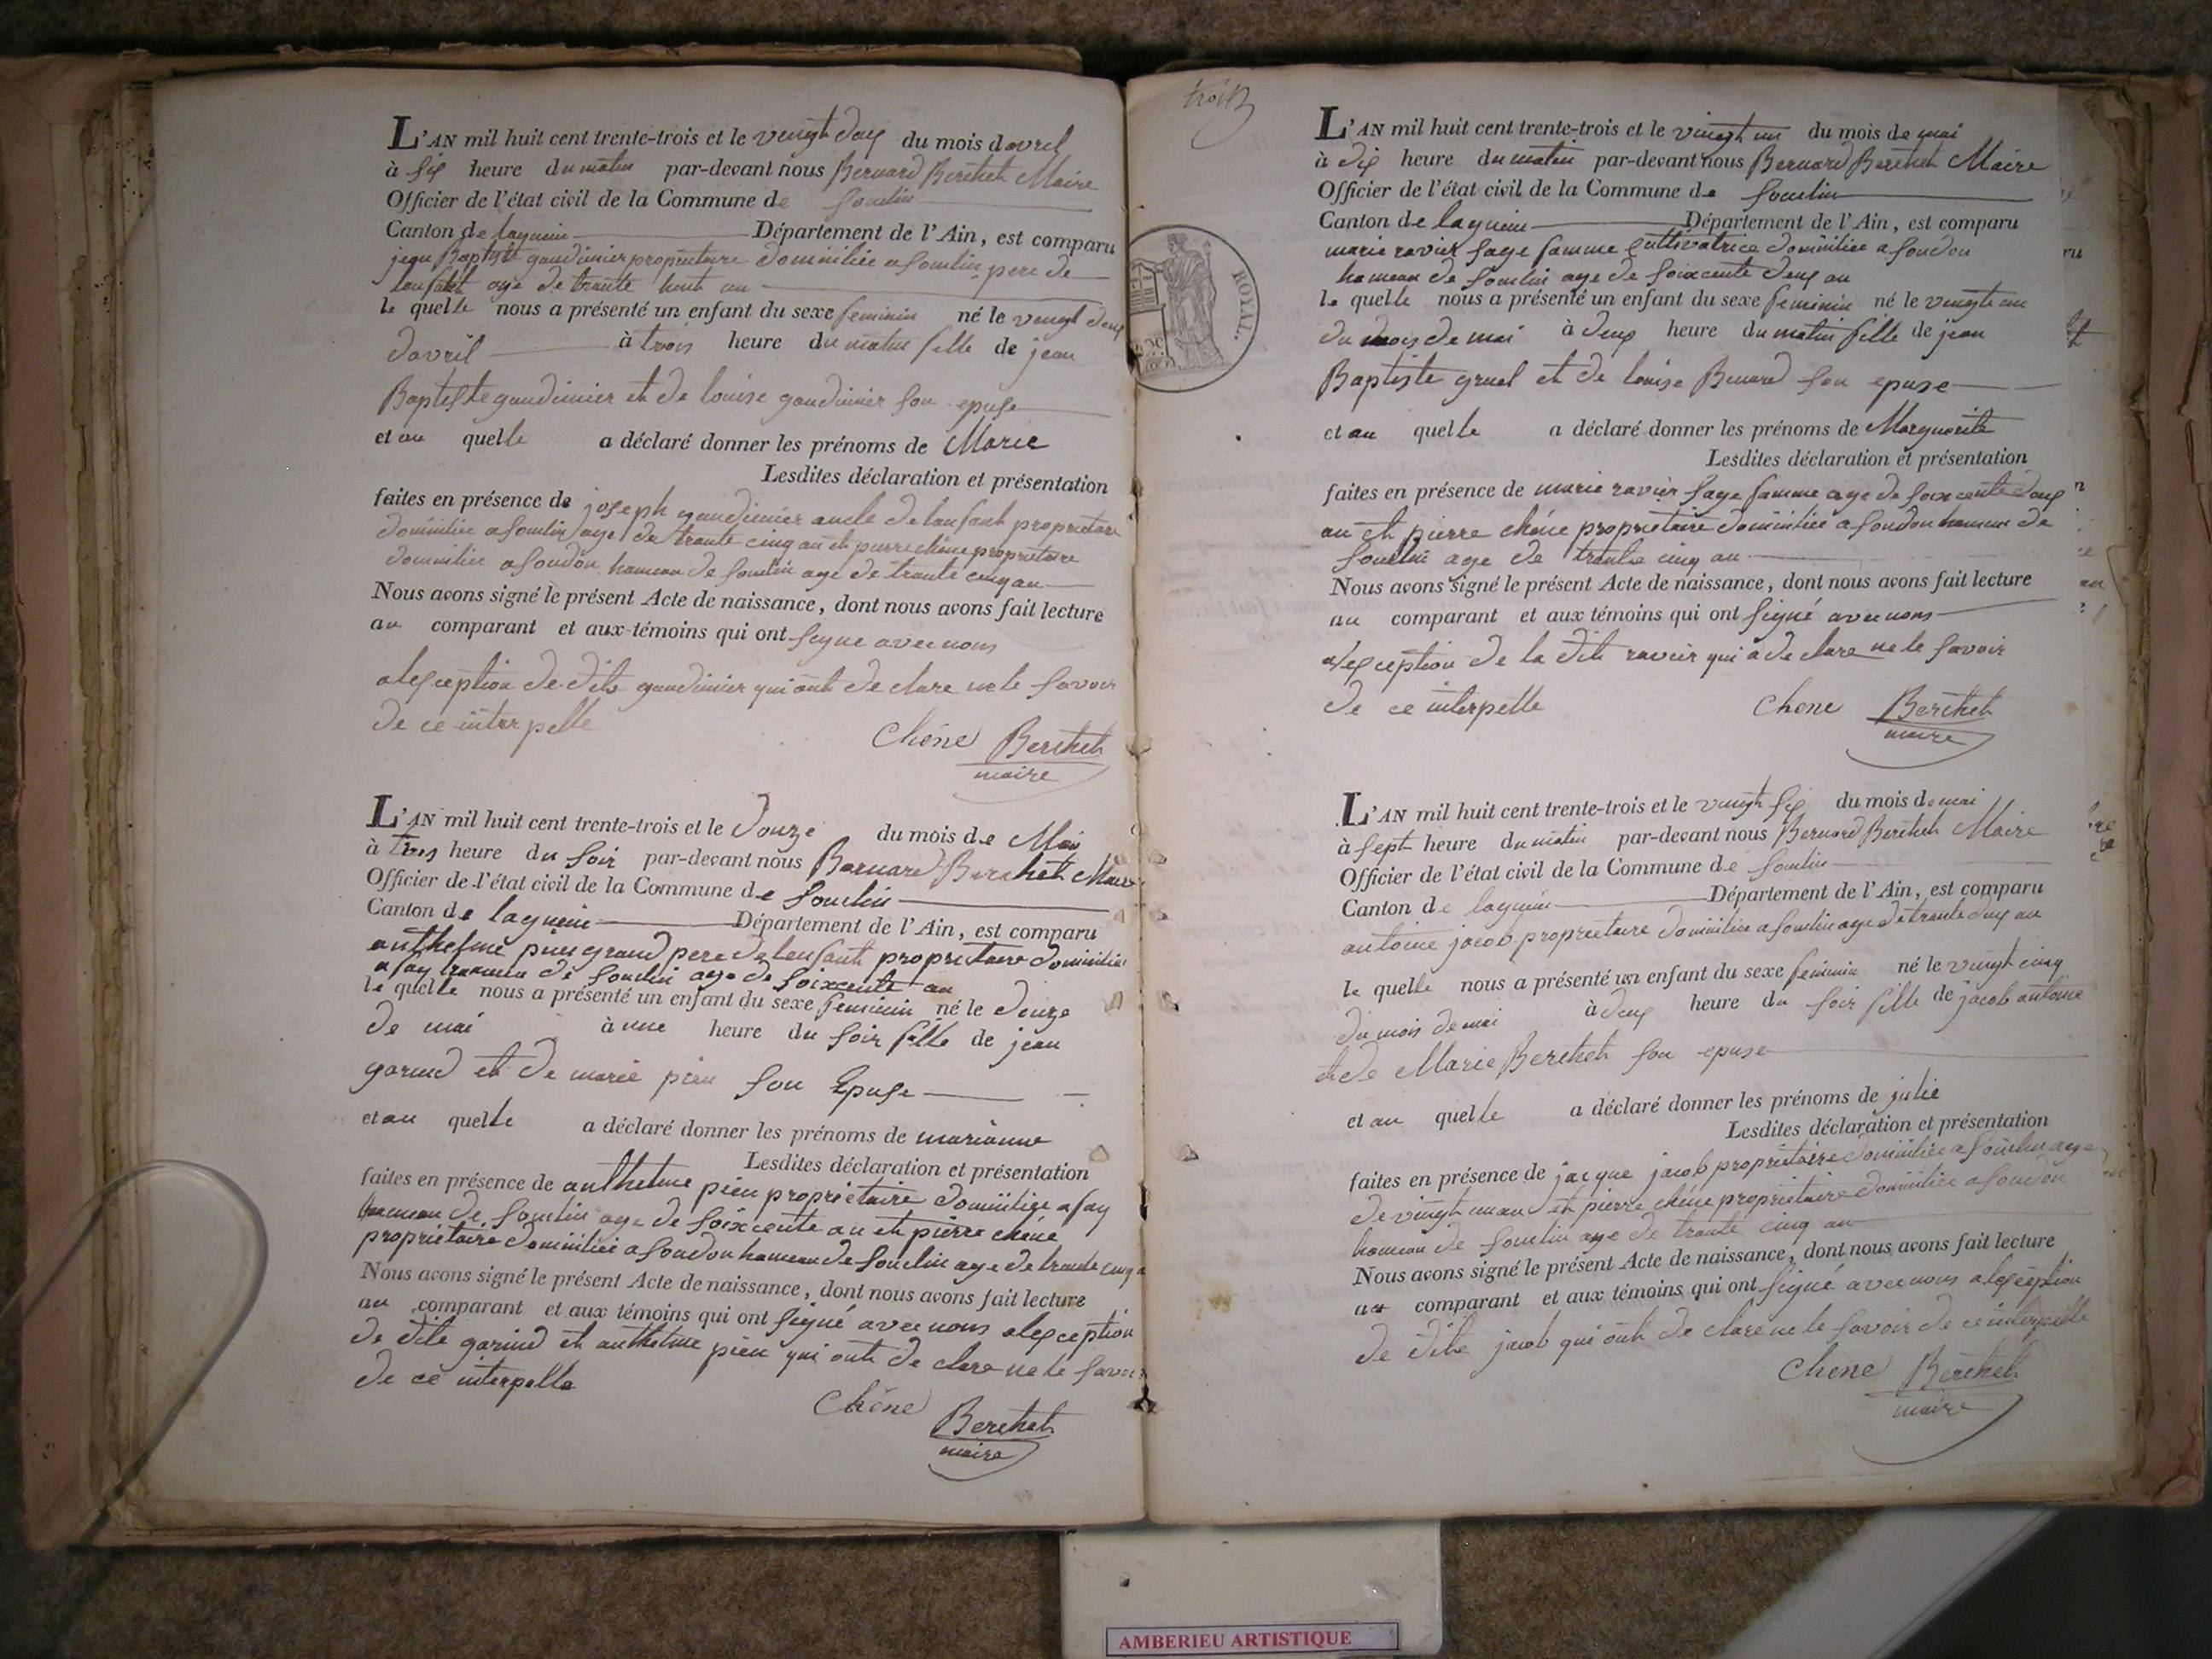 L'AN mil huit cent trente-trois et le vengt deux du mois davril
à six heure du matin par-devant nous Bernard Berthet Maire
Officier de l'état civil de la Commune de Souclin
Canton de lagnieu Département de l'Ain, est comparu
jean Baptiste gaudinier propriettaire dominiliee a Souclin pere de
lenfant age de trante huit an
le quelle nous a présenté un enfant du sexe feminin né le vengt deux
davril à trois heure du matin fille de jean
Baptiste gaudinier et de louise gaudinier son epuse
et au quelle a déclaré donner les prénoms de Marie
Lesdites déclaration et présentation
faites en présence de joseph gaudinier oncle de lenfant proprietaire
dominiliee a souclin age de trante cinq an et pierre chéne proprietaire
dominiliee a Soudon hameau de Souclin age de trante cinq an
Nous avons signé le présent Acte de naissance, dont nous avons fait lecture
au comparant et aux témoins qui ont signe avec nous
alexception de dite gaudinier qui ont de clare ne le savoir
de ce interpelle
Chéne Berthet
maire
L'AN mil huit cent trente-trois et le douze du mois de Mai
à trois heure du soir par-devant nous Bernard Berthet Maire
Officier de l'état civil de la Commune de Souclin
Canton de lagnieu Département de l'Ain, est comparu
anthelme pieu grand pere de lenfant proprietaire dominiliee
a fay hameau de Souclin age de soixcente an
le quelle nous a présenté un enfant du sexe feminin né le douze
de mai à une heure du soir fille de jean
garind et de marie pieu son Epuse
et au quelle a déclaré donner les prénoms de marianne
Lesdites déclaration et présentation
faites en présence de anthelme pieu proprietaire dominiliee a fay
hameau de Souclin age de soixcente an et pierre chéne
proprietaire dominiliee a Soudon hameau de Souclin age de trante cinq a
Nous avons signé le présent Acte de naissance, dont nous avons fait lecture
au comparant et aux témoins qui ont signé avec nous alexception
de dite garind et anthelme pieu qui ont de clare ne le savoir
de ce interpelle
Chéne Berthet
maire
trois
ROYAL.
L'AN mil huit cent trente-trois et le vinght un du mois de mai
à dix heure du matin par-devant nous Bernard Berthet Maire
Officier de l'état civil de la Commune de Souclin
Canton de lagnieu Département de l'Ain, est comparu
marie ravier sage famme cultivatrice dominiliee a soudon
hameau de Souclin age de soixcente deux an
le quelle nous a présenté un enfant du sexe feminin né le vingte un
du mois de mai à deux heure du matin fille de jean
Baptiste gruel et de louise Benard son epuse
et au quelle a déclaré donner les prénoms de Marguerite
Lesdites déclaration et présentation
faites en présence de marie ravier sage famme age de soixcente deux
an et pierre chéne proprietaire dominiliee a soudon hameau de
Souclin age de trante cinq an
Nous avons signé le présent Acte de naissance, dont nous avons fait lecture
au comparant et aux témoins qui ont signé avec nous
alexception de la dite ravier qui a de clare ne le savoir
de ce interpelle
Chene Berthet
maire
L'AN mil huit cent trente-trois et le vingt six du mois de mai
à sept heure du matin par-devant nous Bernard Berthet Maire
Officier de l'état civil de la Commune de Souclin
Canton de lagnieu Département de l'Ain, est comparu
antoine jacob proprietaire dominiliee a Souclin age de trante deux an
le quelle nous a présenté un enfant du sexe feminin né le vingt cinq
du mois de mai à deux heure du soir fille de jacob antoine
et de Marie Berthet son epuse
et au quelle a déclaré donner les prénoms de julie
Lesdites déclaration et présentation
faites en présence de jacque jacob proprietaire dominiliee a Souclin age
de vingt un an et pierre chéne proprietaire dominiliee a Soudon
hameau de Souclin age de trante cinq an
Nous avons signé le présent Acte de naissance, dont nous avons fait lecture
au comparant et aux témoins qui ont signé avec nous alexception
de dite jacob qui ont de clare ne le savoir de ce interpelle
Chene Berthet
maire
AMBERIEU ARTISTIQUE